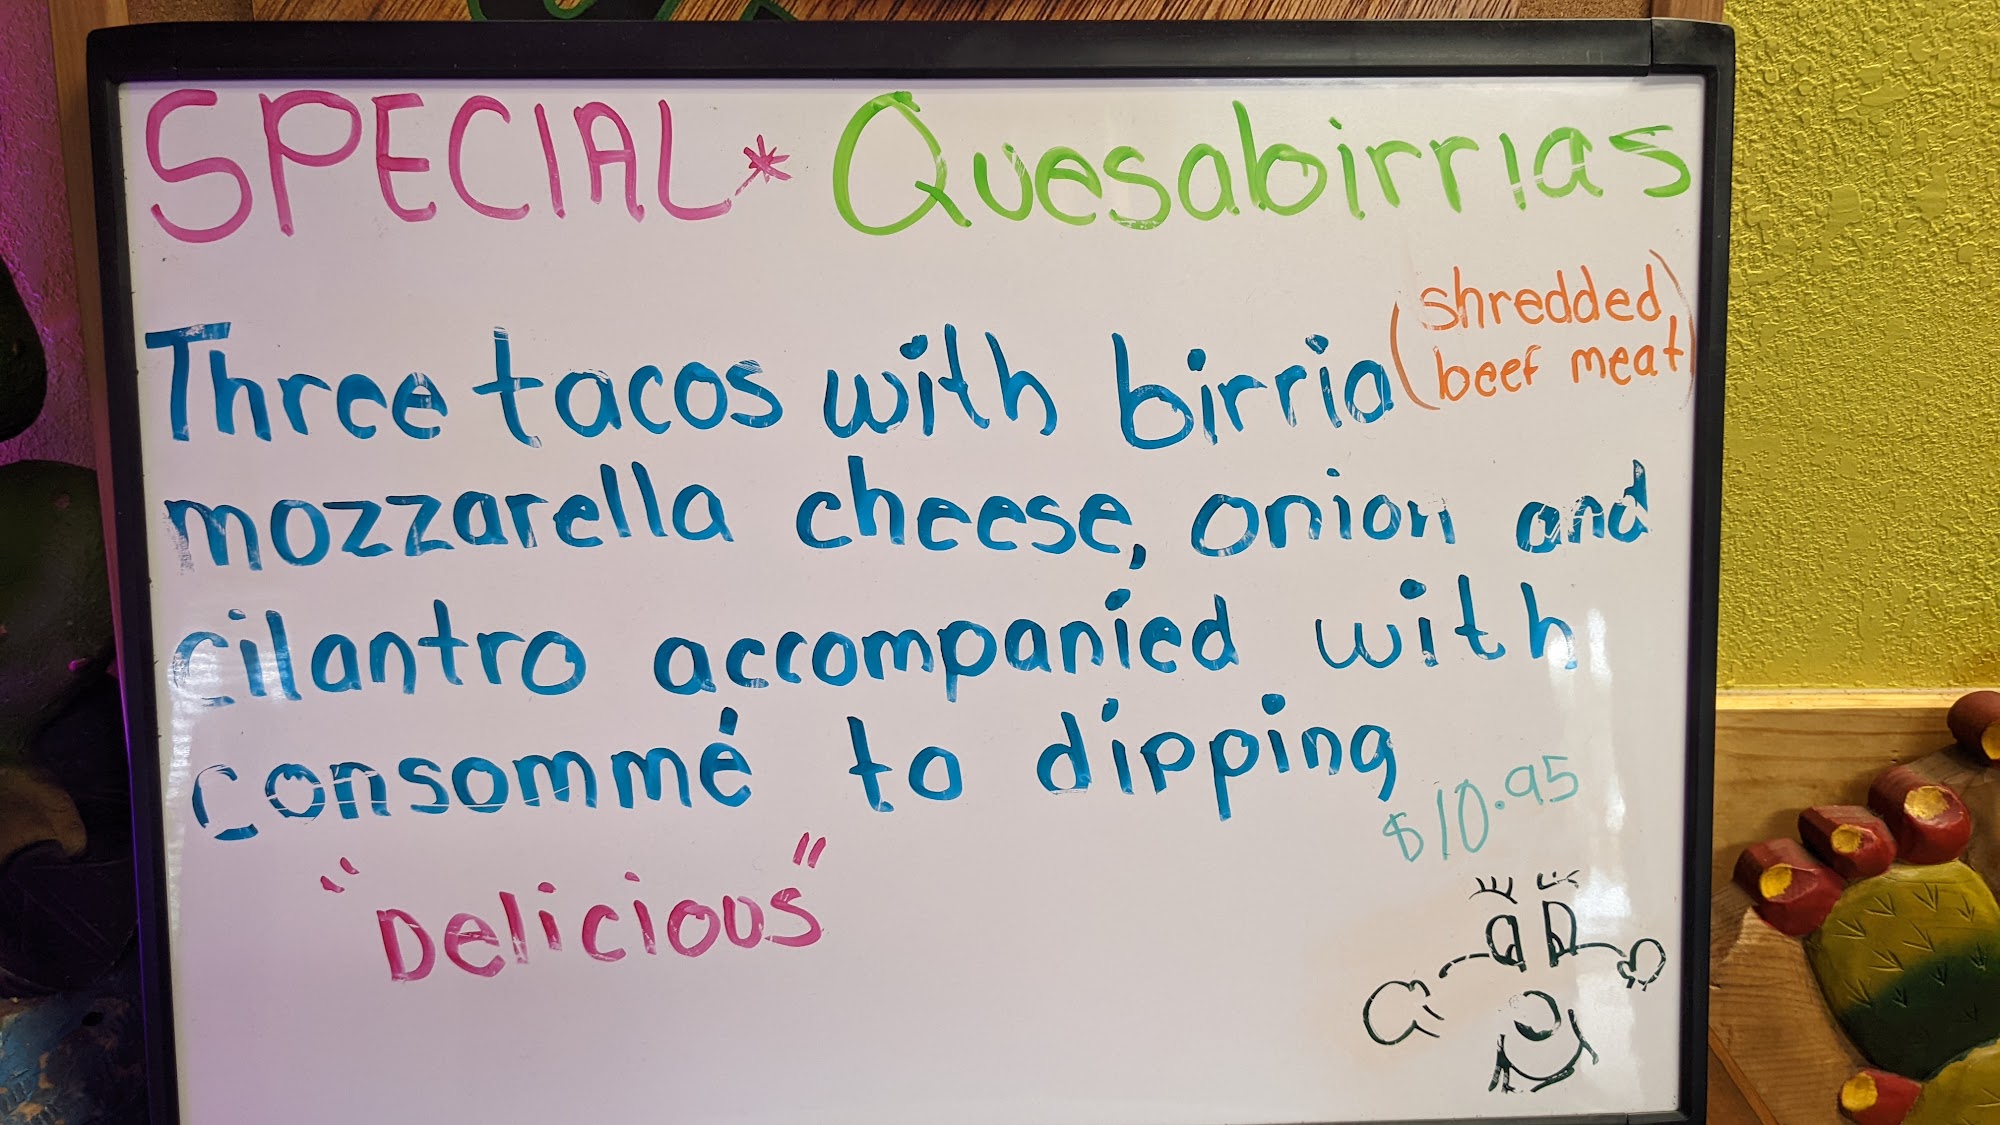 SPECIAL* Quesabirrias
Three tacos with birria (shredded beef meat)
mozzarella cheese, onion and
cilantro accompanied with
consommé to dipping
$10.95
"Delicious"